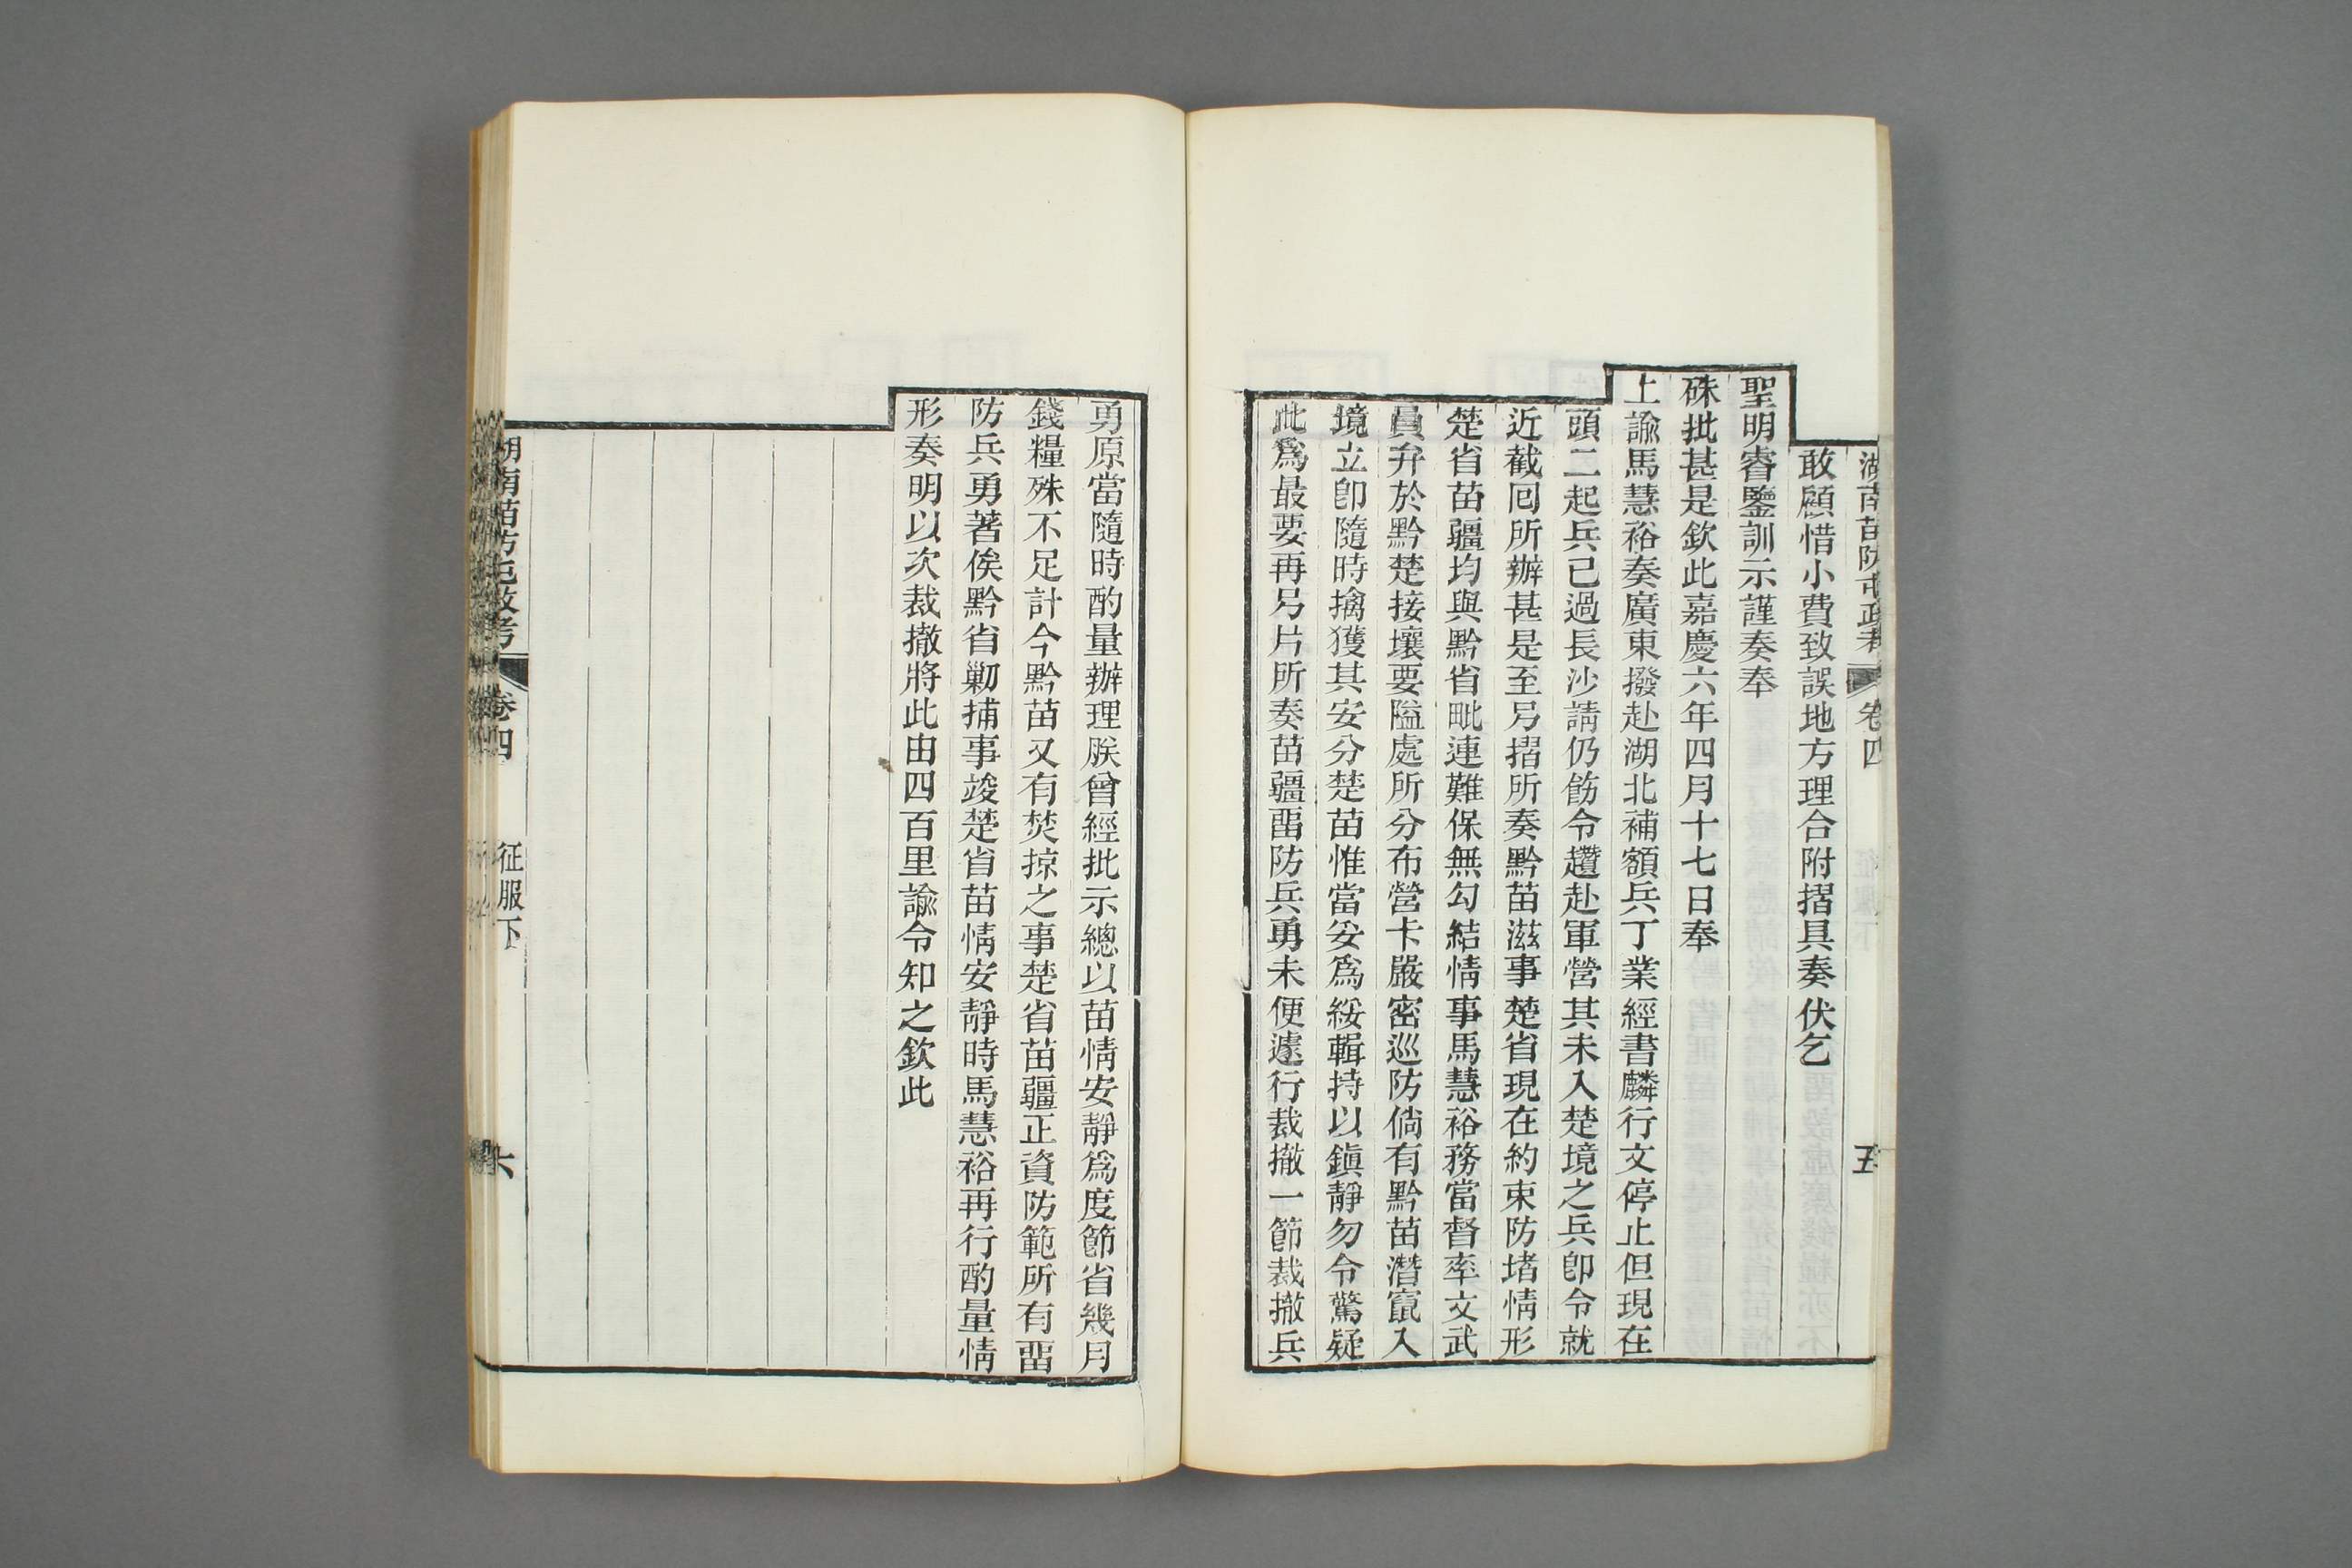 湖南苗防屯政考 卷四 五
敢顧惜小費致誤地方理合附摺具奏伏乞
聖明睿鑒訓示謹奏奉
硃批甚是欽此嘉慶六年四月十七日奉
上諭馬慧裕奏廣東撥赴湖北補額兵丁業經書麟行文停止但現在
頭二起兵已過長沙請仍飭令趲赴軍營其未入楚境之兵卽令就
近截囘所辦甚是至另摺所奏黔苗滋事楚省現在約束防堵情形
楚省苗疆均與黔省毗連難保無勾結情事馬慧裕務當督率文武
員弁於黔楚接壤要隘處所分布營卡嚴密巡防倘有黔苗潛竄入
境立卽隨時擒獲其安分楚苗惟當妥爲綏輯持以鎭靜勿令驚疑
此爲最要再另片所奏苗疆畱防兵勇未便遽行裁撤一節裁撤兵
勇原當隨時酌量辦理朕曾經批示總以苗情安靜爲度節省幾月
錢糧殊不足計今黔苗又有焚掠之事楚省苗疆正資防範所有畱
防兵勇著俟黔省勦捕事竣楚省苗情安靜時馬慧裕再行酌量情
形奏明以次裁撤將此由四百里諭令知之欽此
湖南苗防屯政考 卷四 征服下 六